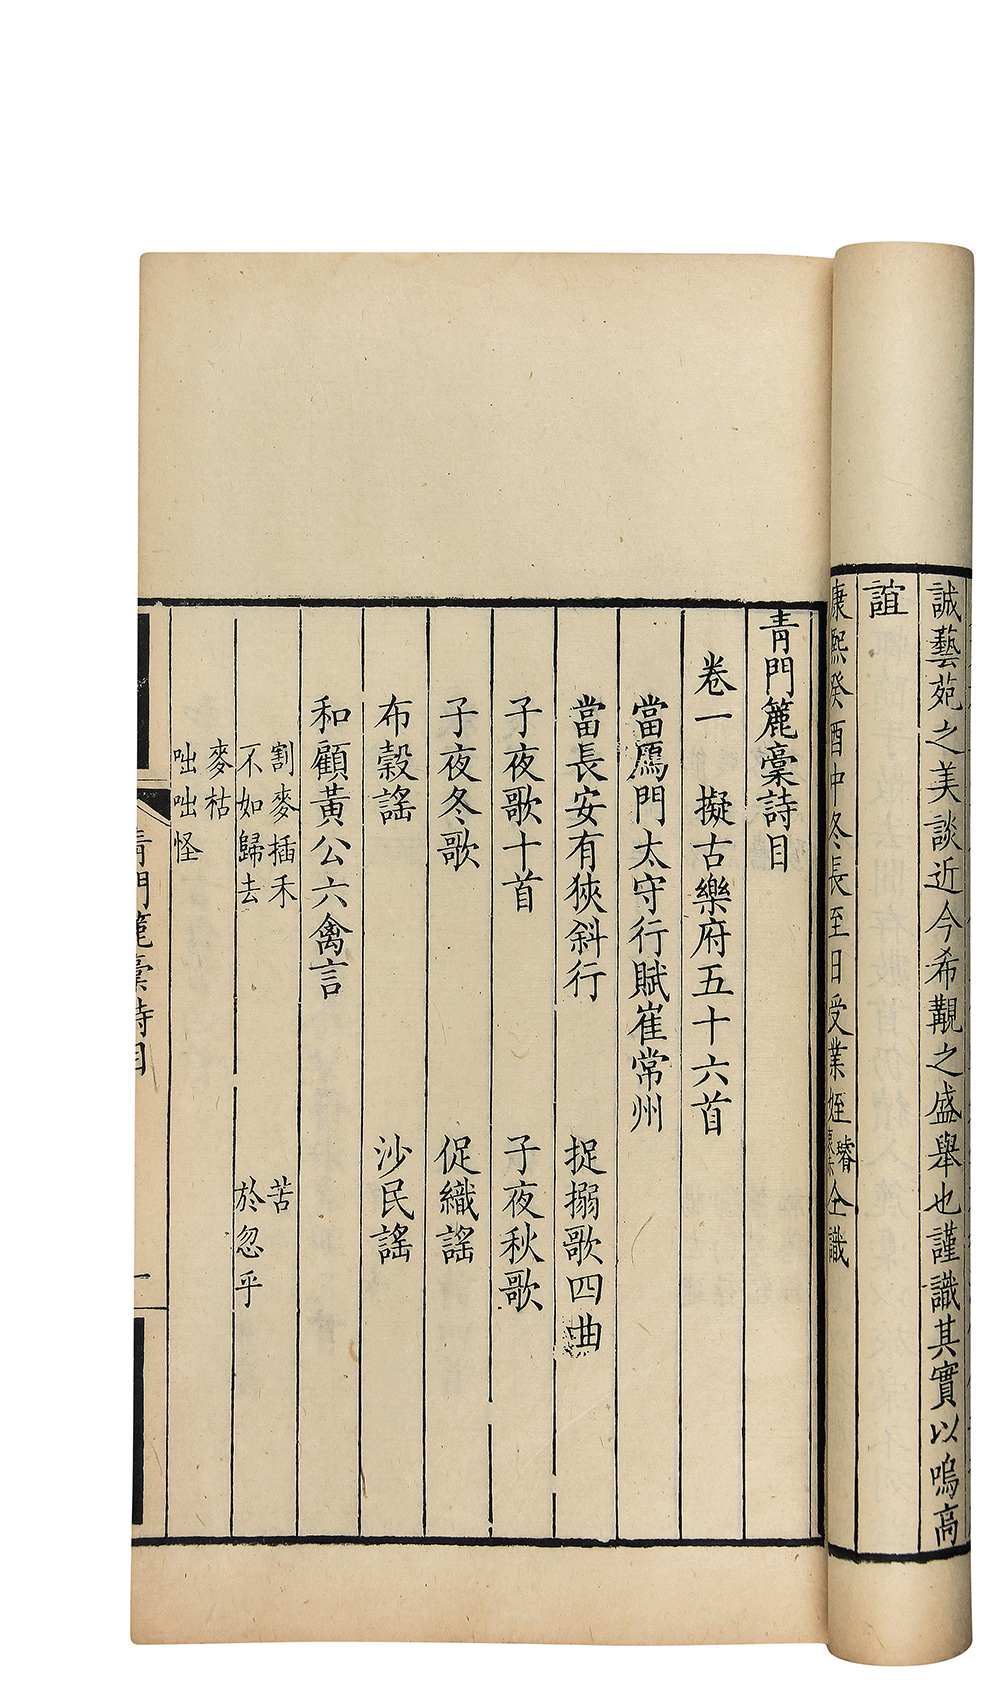 誠藝苑之美談近今希覯之盛舉也謹識其實以鳴高
誼
康熙癸酉中冬長至日受業姪璿
仝識
青門簏稾詩目
卷一 擬古樂府五十六首
當鴈門太守行賦崔常州
當長安有狹斜行 捉搦歌四曲
子夜歌十首 子夜秋歌
子夜冬歌 促織謠
布穀謠 沙民謠
和顧黃公六禽言
割麥插禾 苦
不如歸去 於忽乎
麥枯
咄咄怪
青門簏稾詩目 一